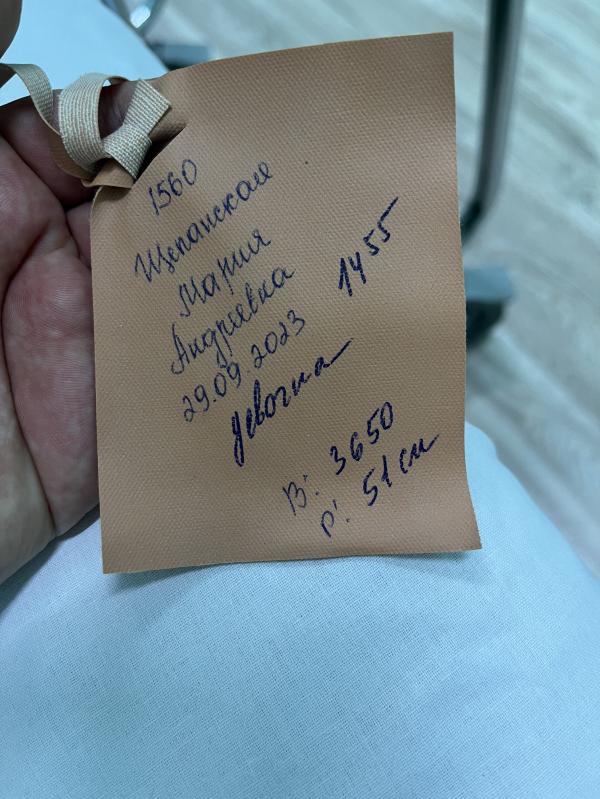 1560
Щепанская
Мария
Андреевна
29.09.2023 1455
девочка
В: 3650
Р: 51 см